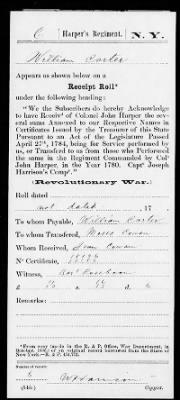 C | Harper's Regiment. | N.Y.
William Carter
Appears as shown below on a
Receipt Roll*
under the following heading:
"We the Subscribers do hereby Acknowledge
to have Receivd of Colonel John Harper the sev-
eral sums Annexed to our Respective Names in
Certificates Issued by the Treasurer of this State
Pursuant to an Act of the Legislature Passed
April 27th, 1784, being for Service performed by
us, or Transferd to us from those who Performed
the same in the Regiment Commanded by Colo
John Harper, in the Year 1780. Capt Joseph
Harrison's Compy."
(Revolutionary War.)
Roll dated
not dated, 17
To whom Payable, William Carter
To whom Transferd,
Whom Received,
No Certificate,
Witness,
Remarks:
*From copy (made in the R. & P. Office, War Department, in
of an original record borrowed from the State of
New York.—R. & P.
Number of record:
6
Copyist.